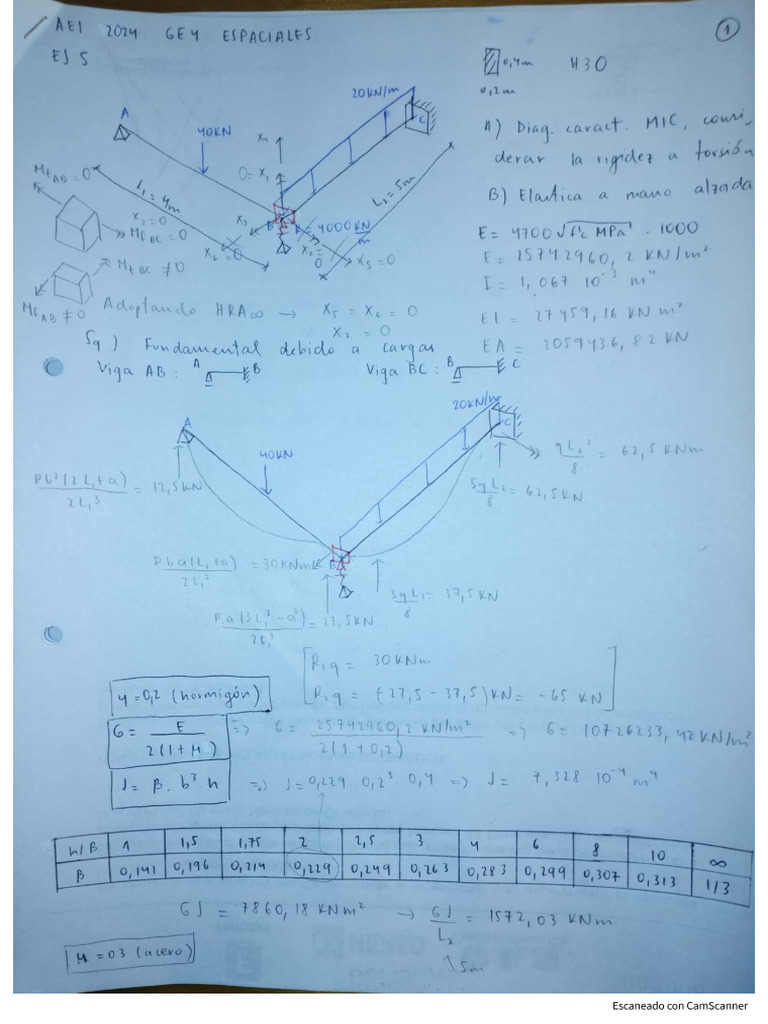 AEI 2024 GE4 ESPACIALES
EJ 5
1
0,4m H30
0,2m
20 KN/m
A
C
40KN
X4
0 = X1
A) Diag. caract. MIC, consi-
derar la rigidez a torsión
B) Elastica a mano alzada
Mt AB = 0
L1 = 4m
L2 = 5m
X3
B
K = 4000 KN/m
X2 = 0
Mf BC = 0
X6 = 0
X2 = 0
X5 = 0
Mt BC ≠ 0
Mf AB ≠ 0
E = 4700 √f'c MPa · 1000
E = 25742960,2 KN/m²
I = 1,067 10⁻³ m⁴
EI = 27459,16 KN m²
EA = 2059436,82 KN
Adoptando HRA∞ → X5 = X6 = 0
X2 = 0
Sq) Fundamental debido a cargas
Viga AB: A B Viga BC: B C
20KN/m
A
C
40KN
q L2²/8 = 62,5 KNm
5qL2/8 = 62,5 KN
Pb²(2L1+a)/2L1³ = 12,5 KN
B
Pba(L1+a)/2L1² = 30 KNm
3qL2/8 = 37,5 KN
P.a(3L1²-a²)/2L1³ = 27,5 KN
R1q = 30 KNm
R1q = (-27,5 - 37,5)KN = -65 KN
μ = 0,2 (hormigón)
G = E/2(1+μ) => G = 25742960,2 KN/m²/2(1+0,2) => G = 10726233,42 KN/m²
J = β. b³. h => J = 0,229. 0,2³. 0,4 => J = 7,328. 10⁻⁴ m⁴
h/B 1 1,5 1,75 2 2,5 3 4 6 8 10 ∞
β 0,141 0,196 0,214 0,229 0,249 0,263 0,283 0,299 0,307 0,313 1/3
GJ = 7860,18 KN m² → GJ/L2 = 1572,03 KN m
5m
μ = 03 (acero)
Escaneado con CamScanner